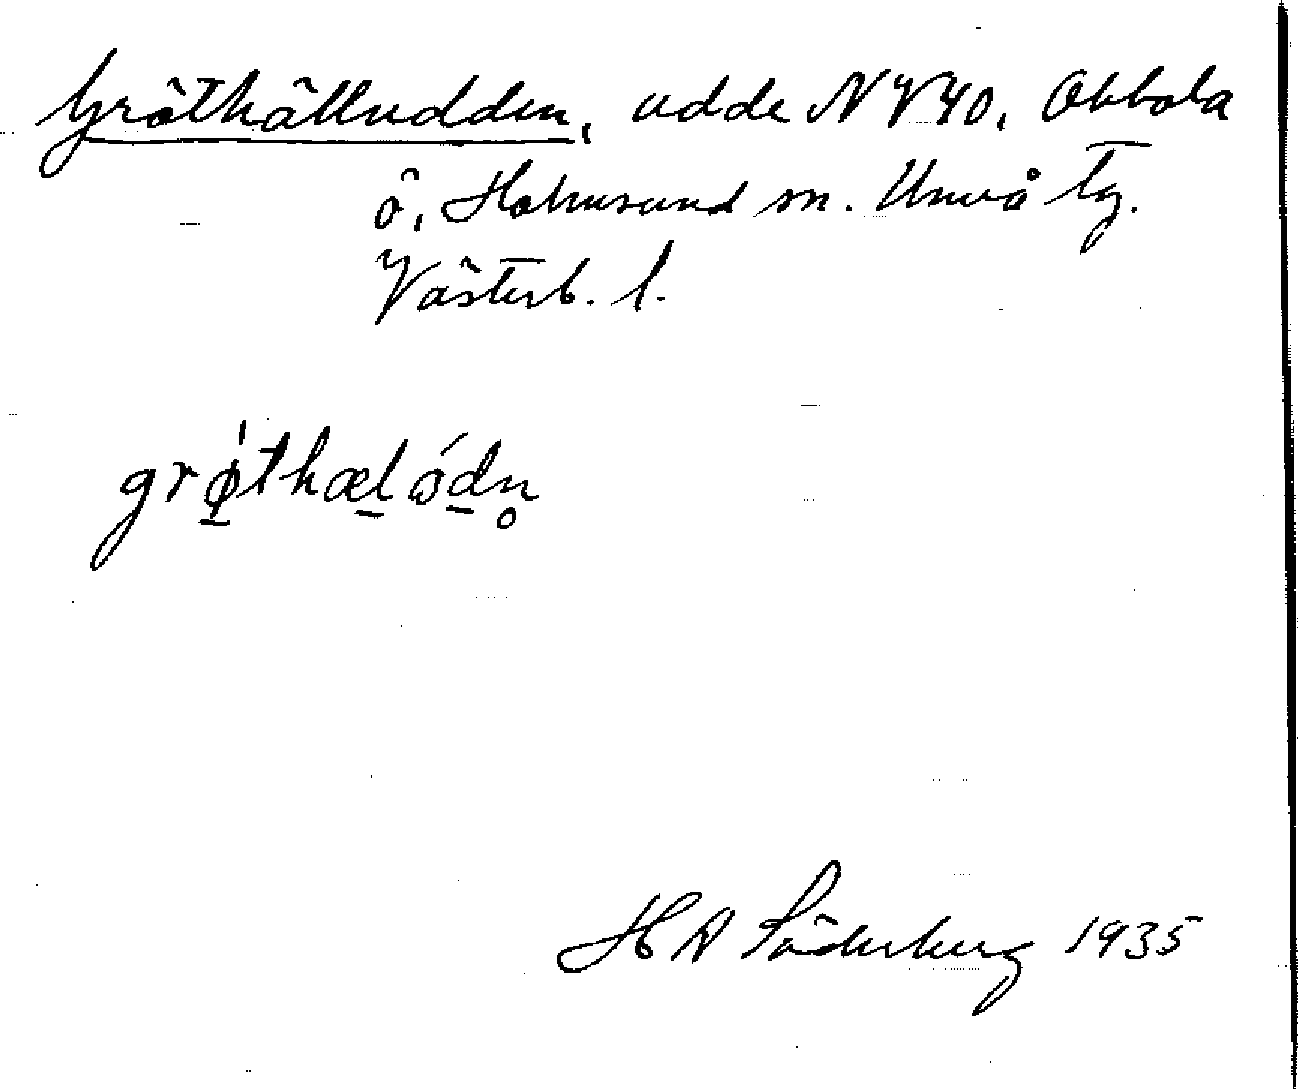 Gröthälludden, udde NV40, Obbola
ö, Holmsund sn. Umeå tg.
Västerb. l.
grǿ̱thæḻó̱ḏn̥
H A Söderberg 1935